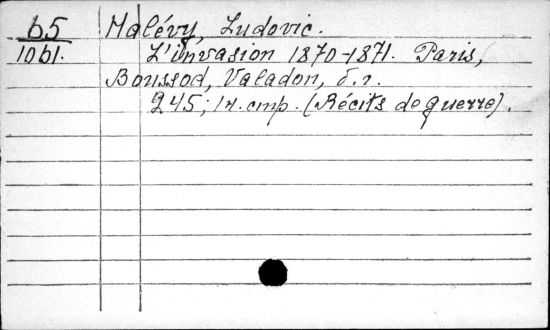 b5 Halévy, Ludovic.
10 bl. L'invasion 1870-1871. Paris,
Boussod, Valadon, б.г.
245; 1н. стр. (Récits de guerre).